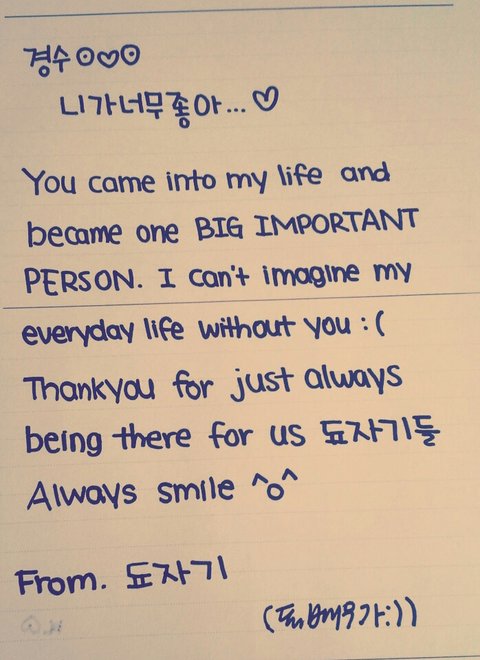 경수 ⊙♡⊙
니가너무좋아... ♡
You came into my life and
became one BIG IMPORTANT
PERSON. I can't imagine my
everyday life without you :(
Thankyou for just always
being there for us 됴자기들
Always smile ^o^
From. 됴자기